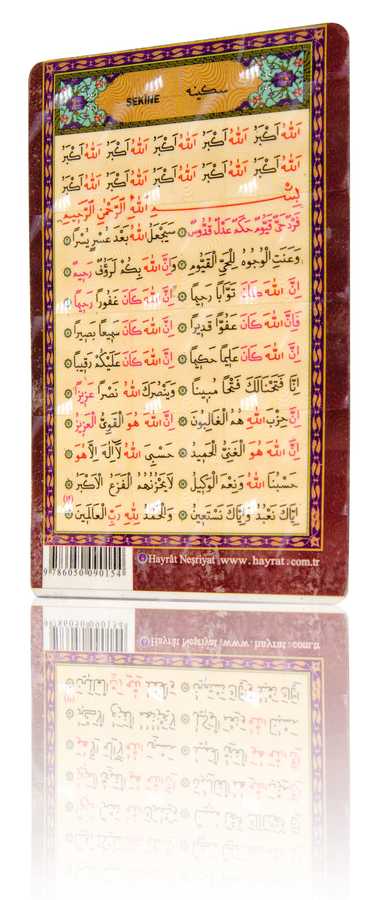 سكينه
SEKİNE
اَللهُ اَكْبَرُ اَللهُ اَكْبَرُ اَللهُ اَكْبَرُ اَللهُ اَكْبَرُ اَللهُ اَكْبَرُ
اَللهُ اَكْبَرُ اَللهُ اَكْبَرُ اَللهُ اَكْبَرُ اَللهُ اَكْبَرُ اَللهُ اَكْبَرُ
بِسْمِ اللهِ الرَّحْمٰنِ الرَّحِيمِ
فَرْدٌ حَيٌّ قَيُّومٌ حَكَمٌ عَدْلٌ قُدُّوسٌ ۞ سَيَجْعَلُ اللهُ بَعْدَ عُسْرٍ يُسْرًا ۞
وَعَنَتِ الْوُجُوهُ لِلْحَيِّ الْقَيُّومِ ۞ وَاِنَّ اللهَ بِكُمْ لَرَؤُفٌ رَحِيمٌ ۞
اِنَّ اللهَ كَانَ تَوَّابًا رَحِيمًا ۞ اِنَّ اللهَ كَانَ غَفُورًا رَحِيمًا ۞
فَاِنَّ اللهَ كَانَ عَفُوًّا قَدِيرًا ۞ اِنَّ اللهَ كَانَ سَمِيعًا بَصِيرًا ۞
اِنَّ اللهَ كَانَ عَلِيمًا حَكِيمًا ۞ اِنَّ اللهَ كَانَ عَلَيْكُمْ رَقِيبًا ۞
اِنَّا فَتَحْنَا لَكَ فَتْحًا مُبِينًا ۞ وَيَنْصُرَكَ اللهُ نَصْرًا عَزِيزًا ۞
اِنَّ حِزْبَ اللهِ هُمُ الْغَالِبُونَ ۞ اِنَّ اللهَ هُوَ الْقَوِيُّ الْعَزِيزُ ۞
اِنَّ اللهَ هُوَ الْغَنِيُّ الْحَمِيدُ ۞ حَسْبِيَ اللهُ لَا اِلٰهَ اِلَّا هُوَ ۞
حَسْبُنَا اللهُ وَنِعْمَ الْوَكِيلُ ۞ لَا يَحْزُنُهُمُ الْفَزَعُ الْاَكْبَرُ ۞
اِيَّاكَ نَعْبُدُ وَاِيَّاكَ نَسْتَعِينُ ۞ وَالْحَمْدُ لِلّٰهِ رَبِّ الْعَالَمِينَ ۞
9 786050 090154
Hayrât Neşriyat www.hayrat.com.tr